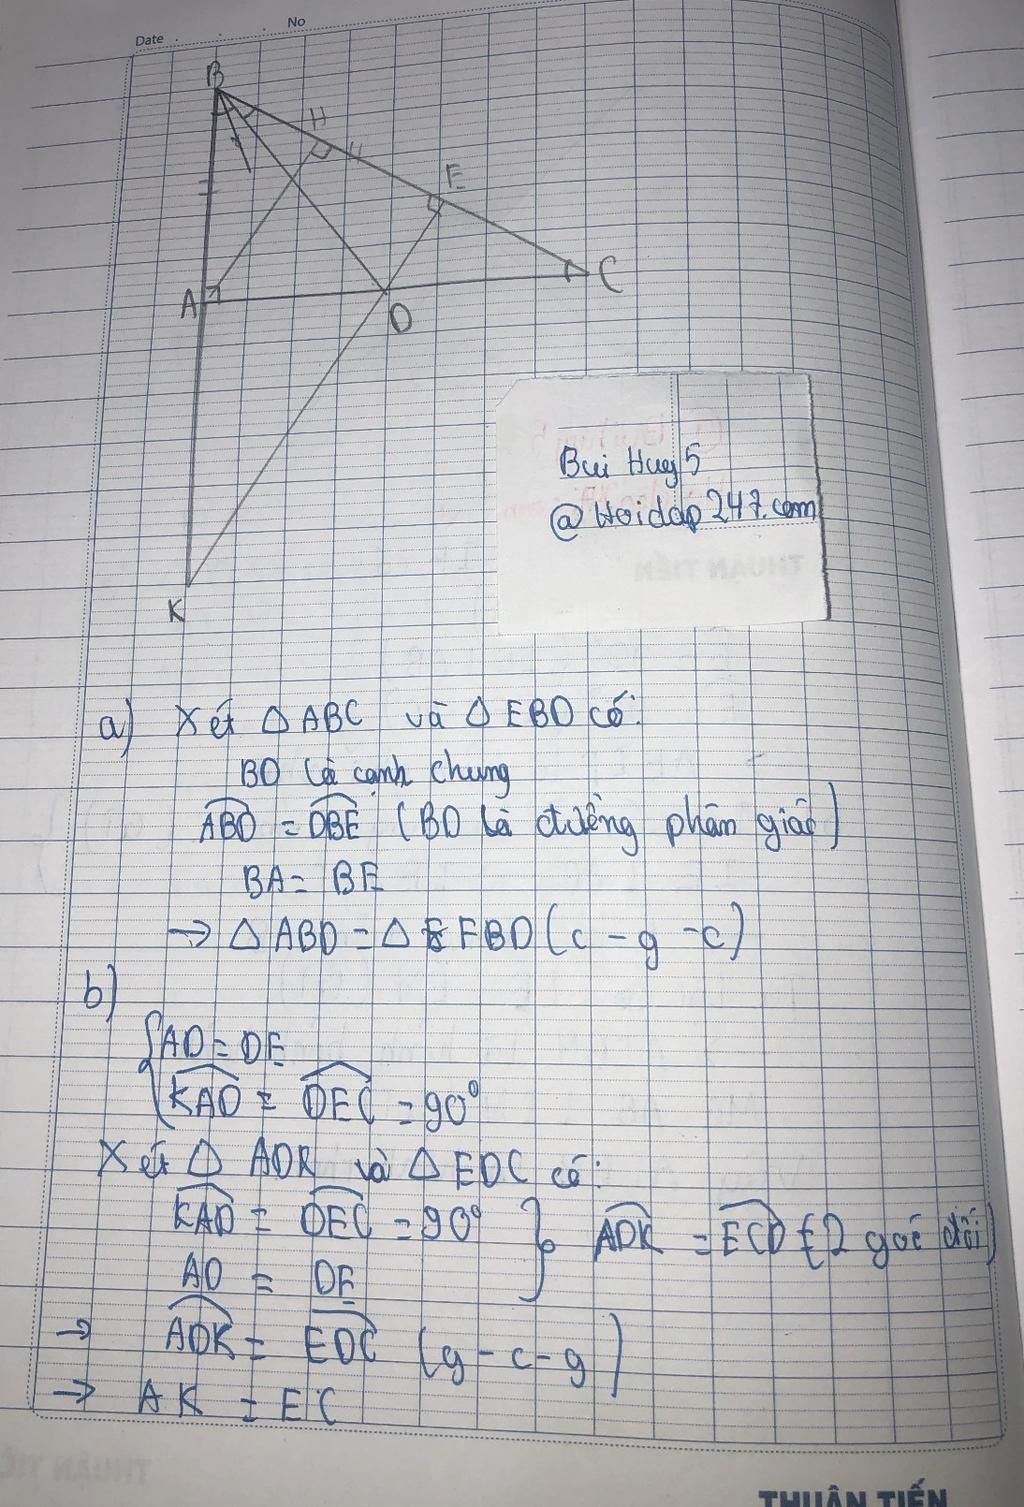 Date
No
B
H
E
A
D
C
K
Bui Huy 5
@Hoidap247.com
a) Xét △ ABC và △ EBD có:
BD là cạnh chung
ABD = DBE (BD là đường phân giác)
BA = BE
→ △ ABD = △ EBD (c - g - c)
b)
{AD = DE
KAD = DEC = 90°
Xét △ ADK và △ EDC có:
KAD = DEC = 90°
AD = DE
} ADK = ECD (2 góc đối)
→ ADK = EDC (g - c - g)
→ AK = EC
THUẬN TIẾN